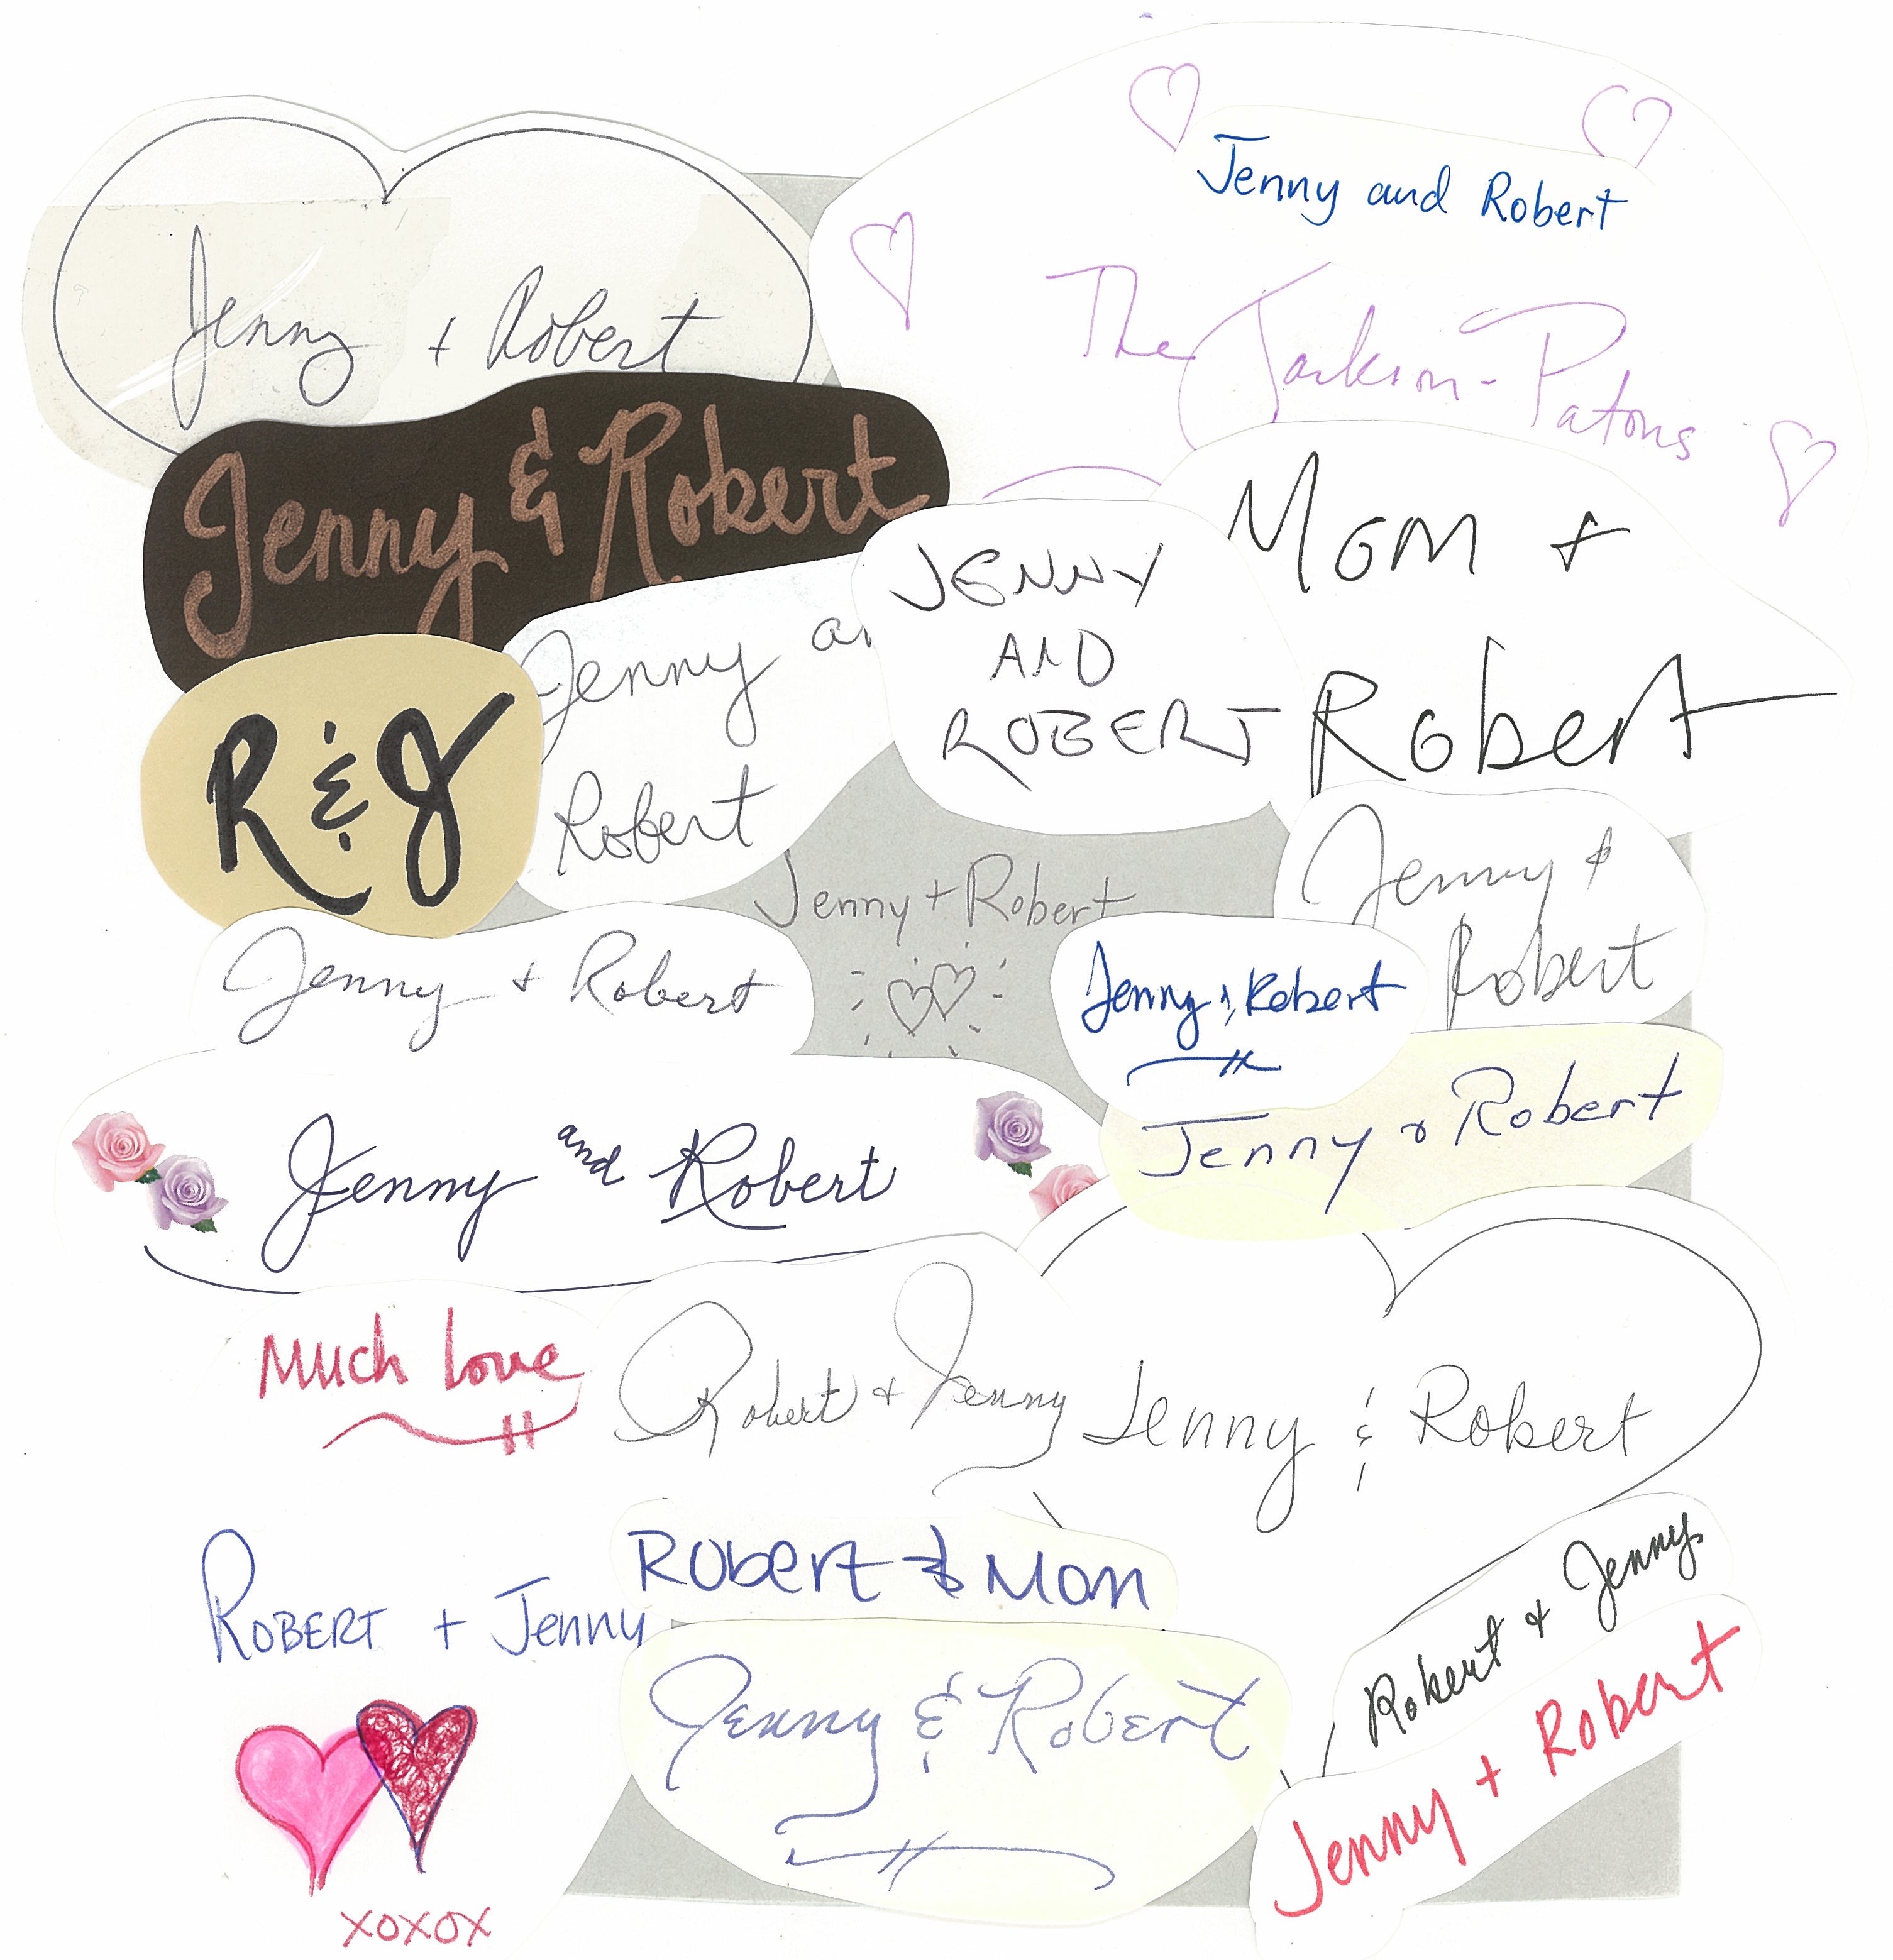 Jenny and Robert
Jenny + Robert
The Jackson-Patons
Jenny & Robert
Mom +
Robert
JENNY
AND
ROBERT
Jenny
Robert
R & J
Jenny + Robert
Jenny &
Robert
Jenny + Robert
Jenny & Robert
Jenny & Robert
Jenny and Robert
Much Love
Robert + Jenny
Jenny & Robert
Robert & Mom
ROBERT + Jenny
Robert & Jenny
Jenny & Robert
Jenny + Robert
XOXOX